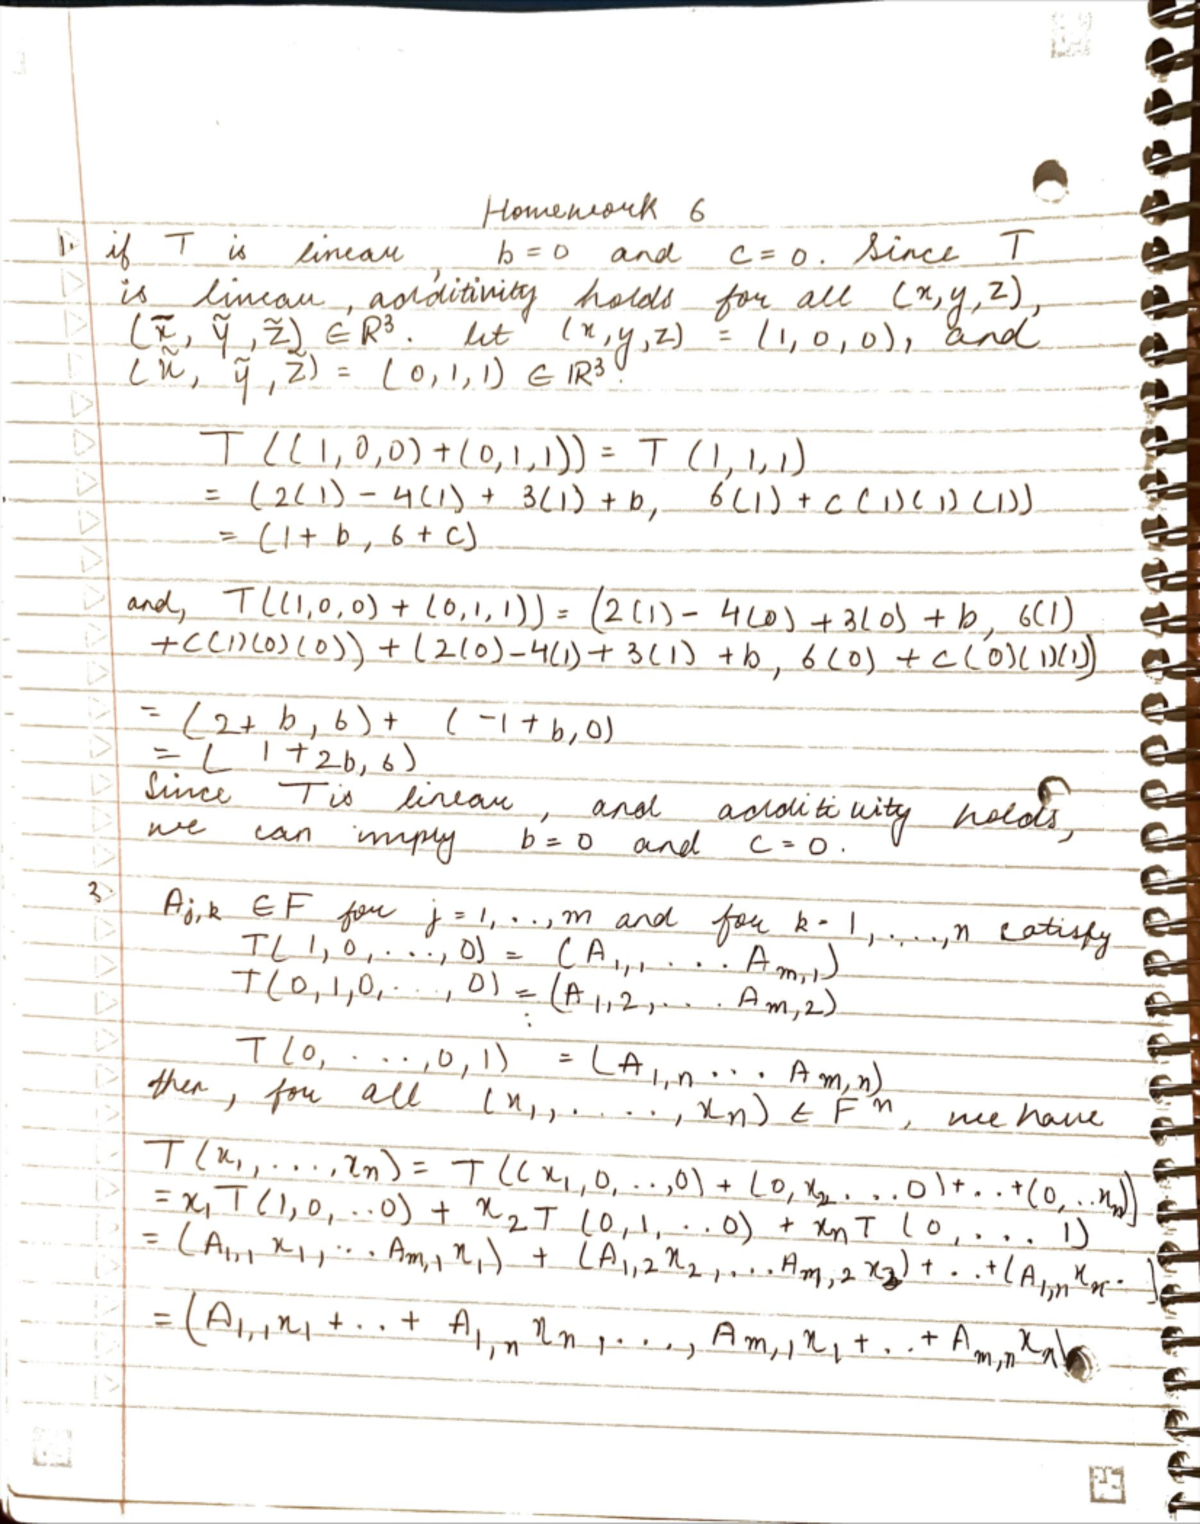 Homework 6
1. if T is linear, b = 0 and c = 0. Since T
is linear, additivity holds for all (x, y, z),
(x̃, ỹ, z̃) ∈ R³. let (x, y, z) = (1, 0, 0), and
(x̃, ỹ, z̃) = (0, 1, 1) ∈ R³.
T((1,0,0)+(0,1,1)) = T(1,1,1)
= (2(1) - 4(1) + 3(1) + b, 6(1) + c(1)(1)(1))
= (1 + b, 6 + c)
and, T((1,0,0) + (0,1,1)) = (2(1) - 4(0) + 3(0) + b, 6(1)
+ c(1)(0)(0)) + (2(0) - 4(1) + 3(1) + b, 6(0) + c(0)(1)(1))
= (2 + b, 6) + (-1 + b, 0)
= (1 + 2b, 6)
Since T is linear, and additivity holds,
we can imply b = 0 and c = 0.
3 A_{j,k} ∈ F for j = 1, ..., m and for k = 1, ..., n satisfy
T(1, 0, ..., 0) = (A_{1,1} ... A_{m,1})
T(0, 1, 0, ..., 0) = (A_{1,2}, ... A_{m,2})
⋮
T(0, ..., 0, 1) = (A_{1,n} ... A_{m,n})
then, for all (x_1, ..., x_n) ∈ F^n, we have
T(x_1, ..., x_n) = T((x_1, 0, .., 0) + (0, x_2 ... 0) + .. + (0, .. x_n))
= x_1 T(1, 0, .. 0) + x_2 T(0, 1, .. 0) + x_n T(0, ... 1)
= (A_{1,1} x_1, ... A_{m,1} x_1) + (A_{1,2} x_2, ... A_{m,2} x_2) + .. + (A_{1,n} x_n .. )
= (A_{1,1} x_1 + .. + A_{1,n} x_n, ..., A_{m,1} x_1 + .. + A_{m,n} x_n)